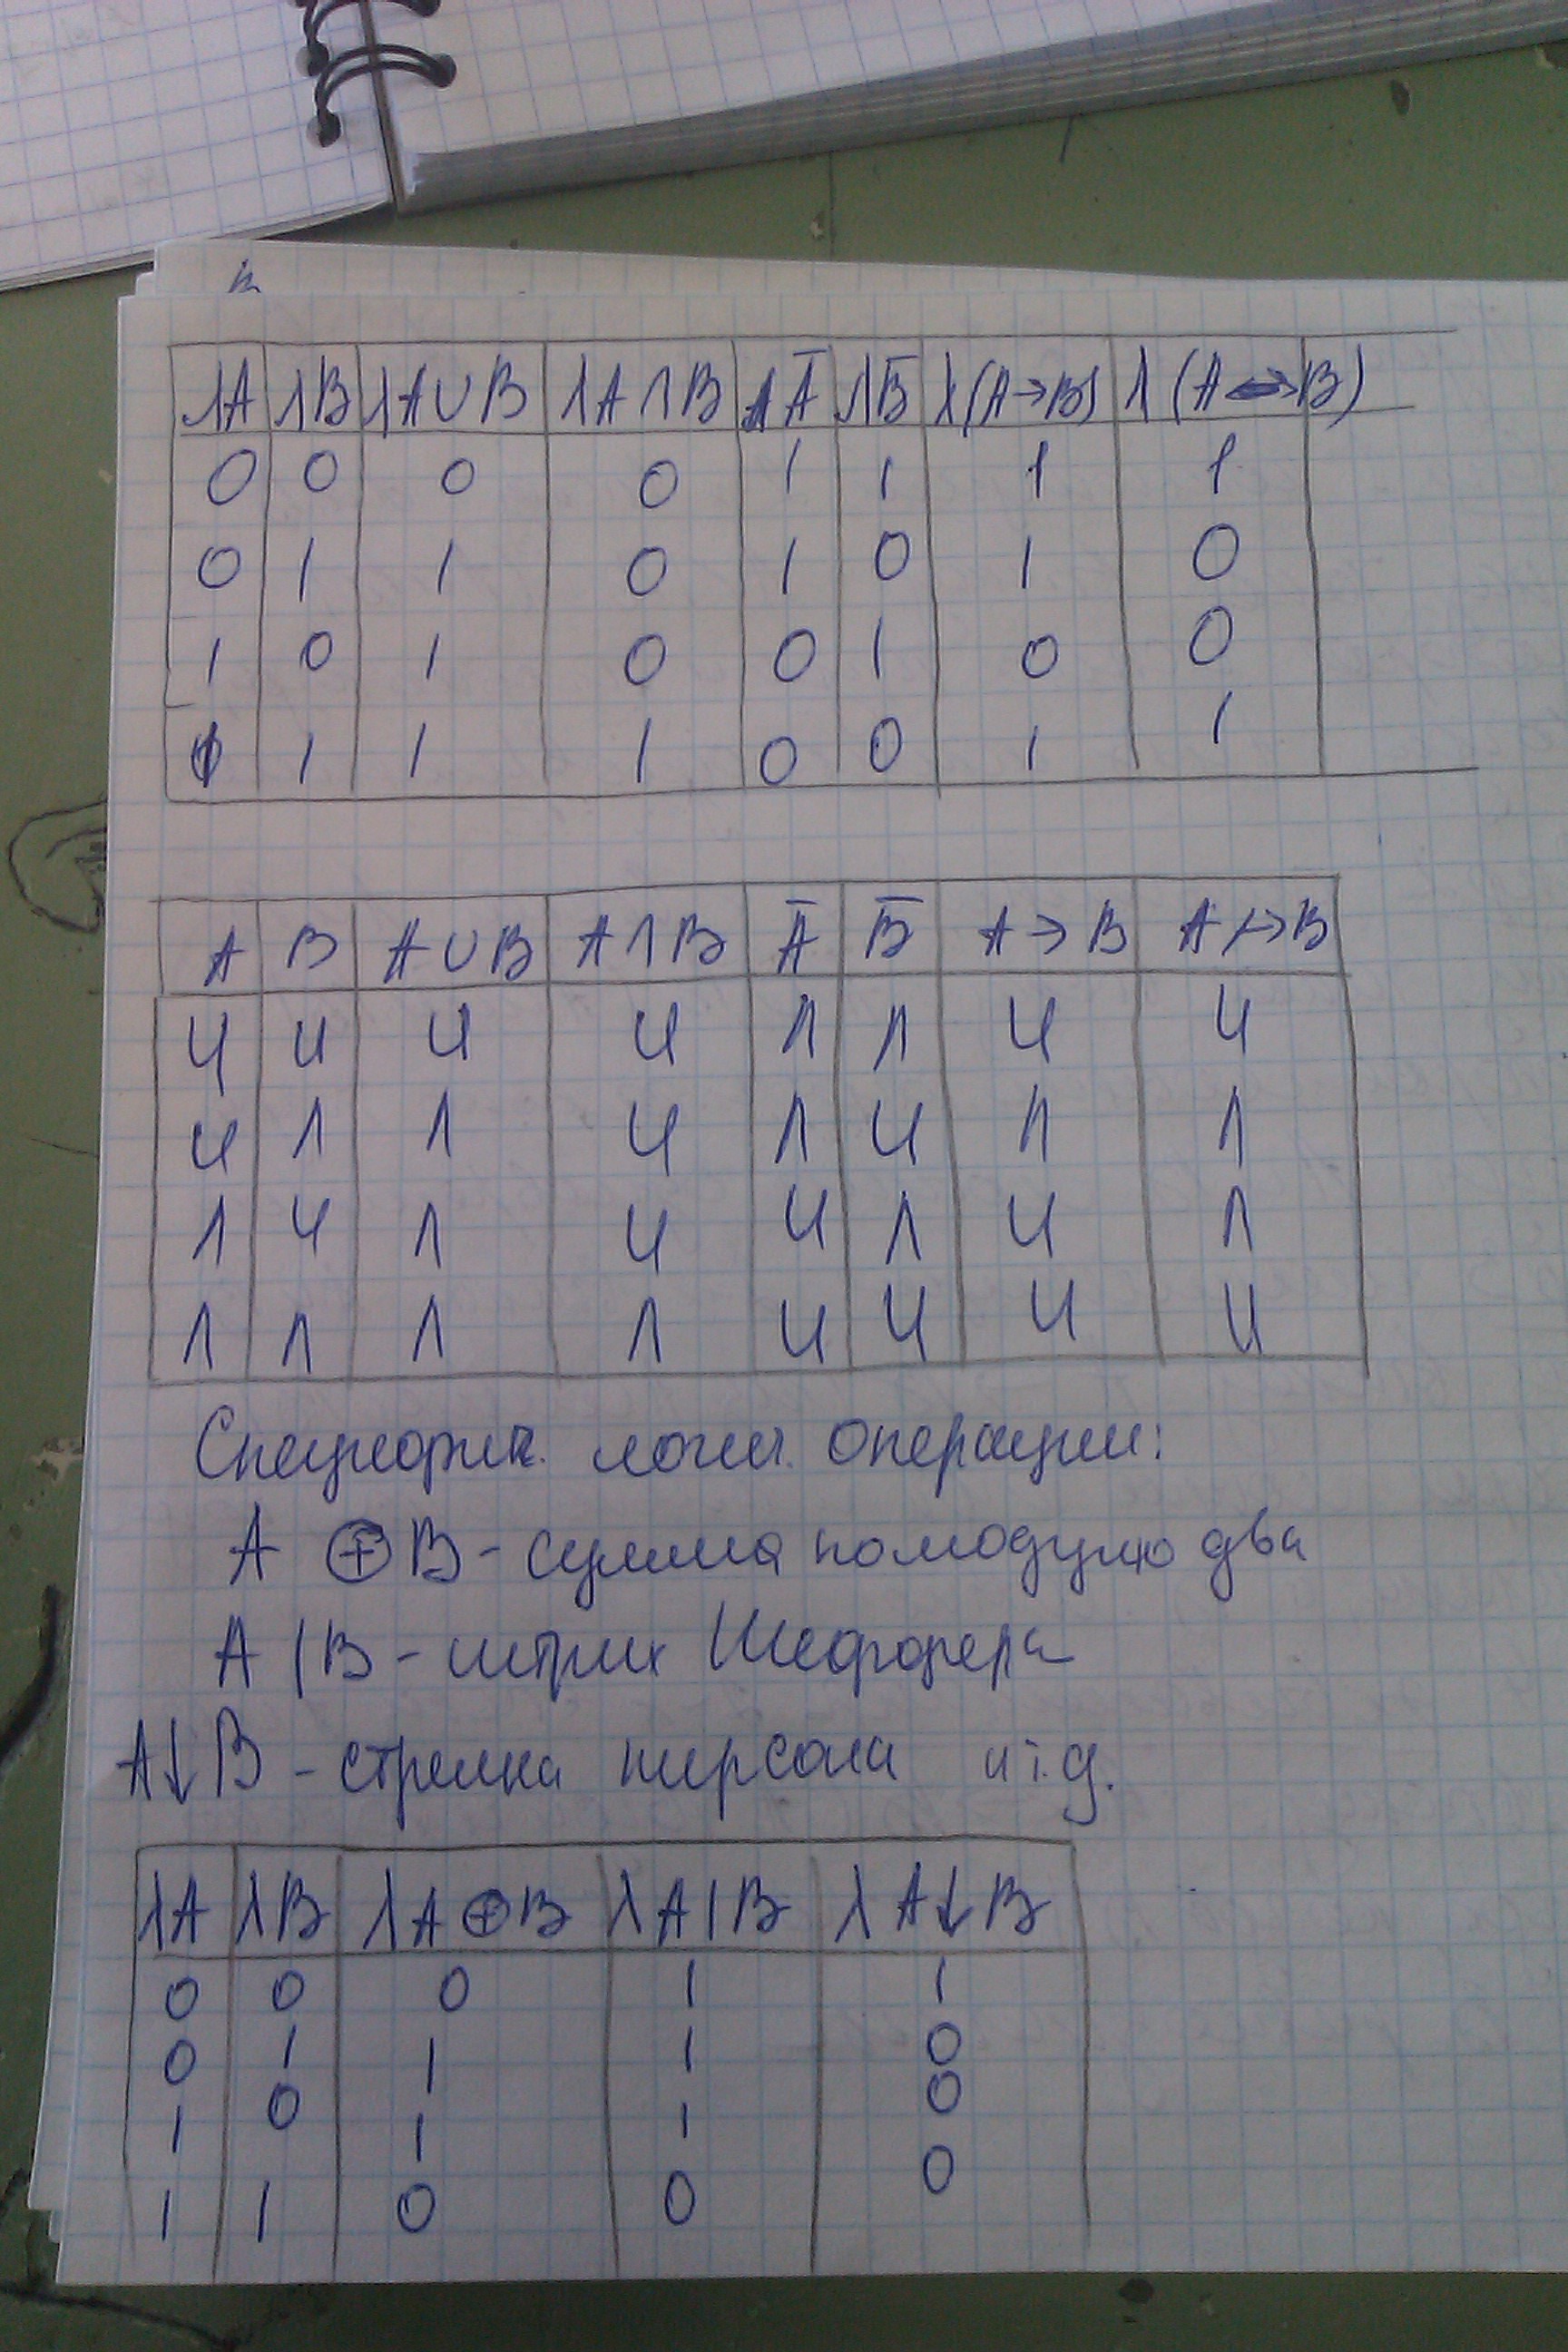 λA λB λA∪B λA∩B λA̅ λB̅ λ(A→B) λ(A↔B)
0 0 0 0 1 1 1 1
0 1 1 0 1 0 1 0
1 0 1 0 0 1 0 0
1 1 1 1 0 0 1 1
A B A∪B A∩B A̅ B̅ A→B A↔B
И И И И Л Л И И
И Л Л И Л И Л Л
Л И Л И И Л И Л
Л Л Л Л И И И И
Специфич. логич. операции:
A ⊕ B - сумма по модулю два
A | B - штрих Шеффера
A↓B - стрелка пирсона и т.д.
λA λB λA⊕B λA|B λA↓B
0 0 0 1 1
0 1 1 1 0
1 0 1 1 0
1 1 0 0 0